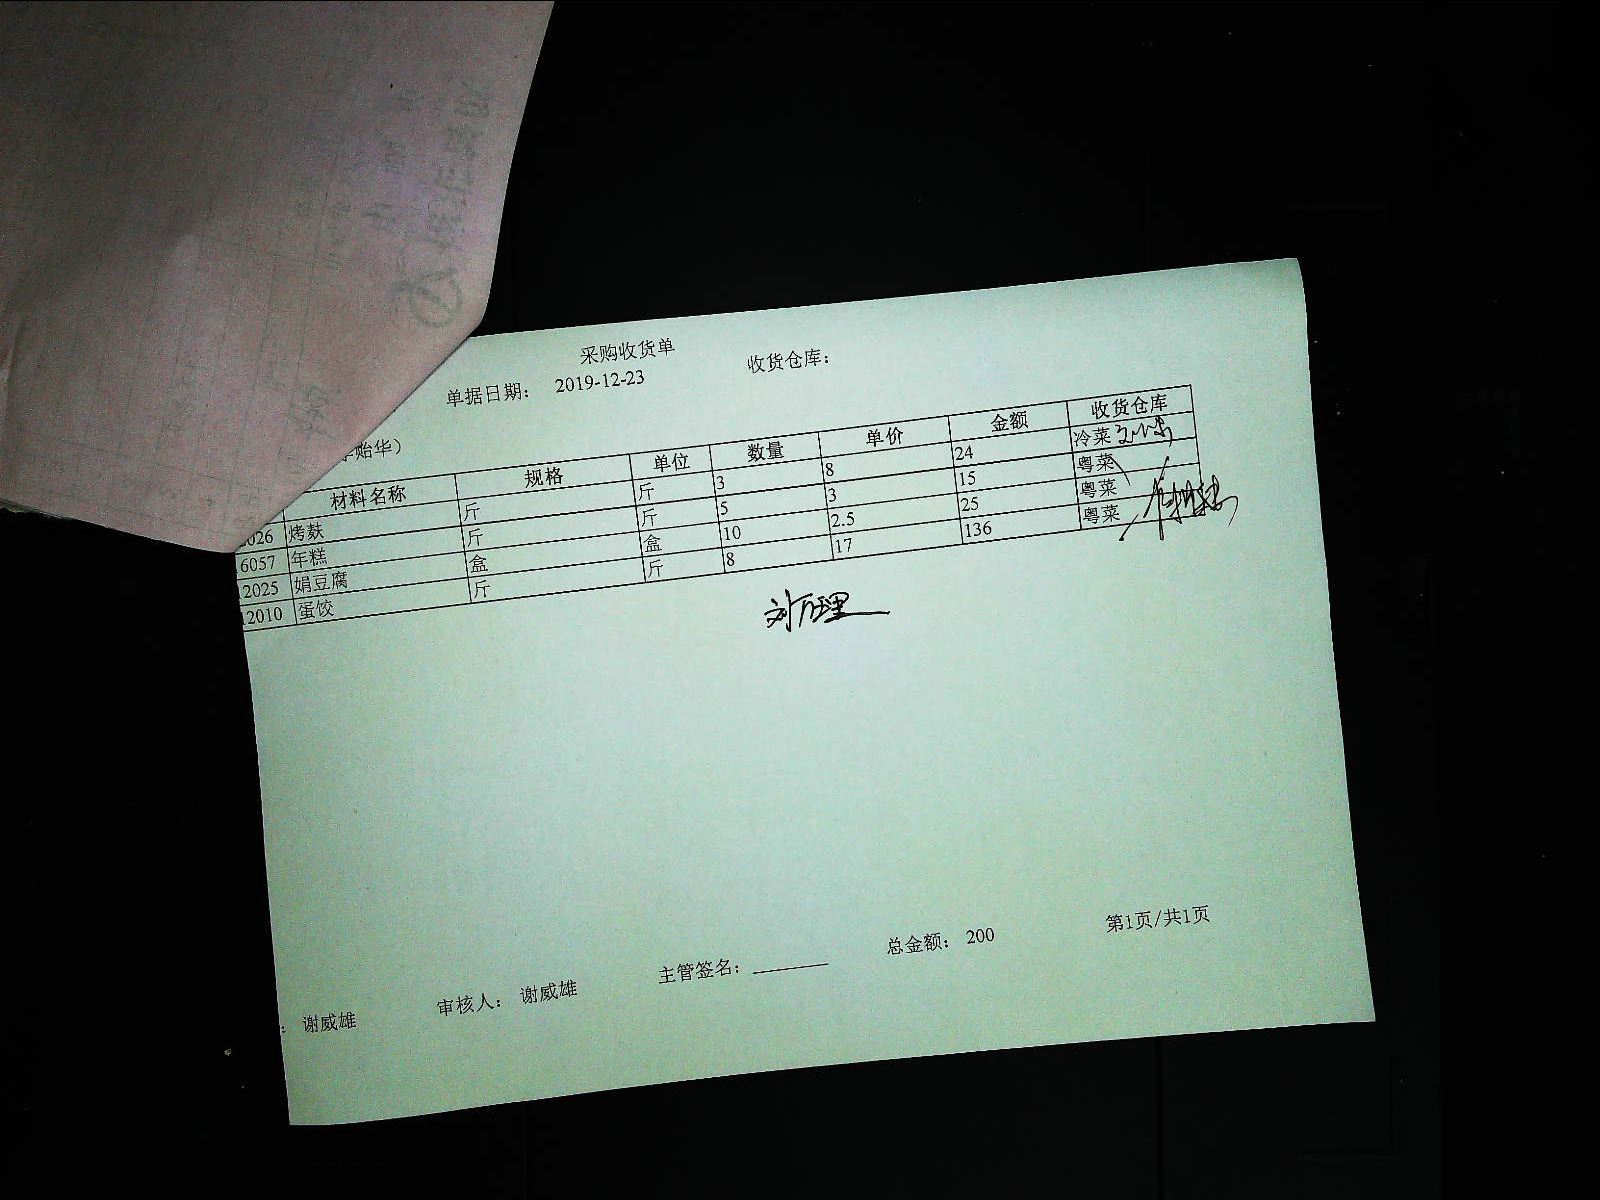 采购收货单
单据日期： 2019-12-23 收货仓库：
贻华）
材料名称 规格 单位 数量 单价 金额 收货仓库
026 烤麸 斤 斤 3 8 24 冷菜
6057 年糕 斤 斤 5 3 15 粤菜
2025 娟豆腐 盒 盒 10 2.5 25 粤菜
2010 蛋饺 斤 斤 8 17 136 粤菜
：谢威雄 审核人： 谢威雄 主管签名： 总金额： 200 第1页/共1页